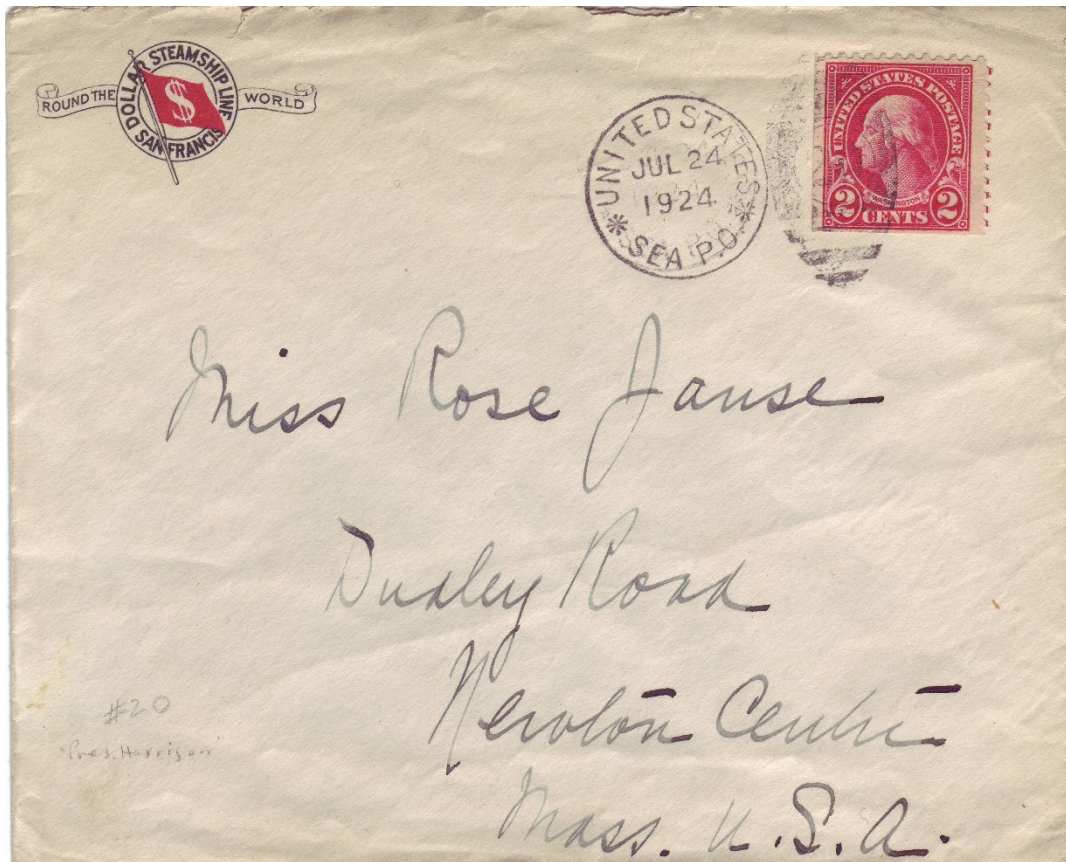 ROUND THE WORLD
DOLLAR STEAMSHIP LINE
SAN FRANCISCO
$
UNITED STATES
JUL 24
1924
SEA P.O.
UNITED STATES POSTAGE
WASHINGTON
2 CENTS 2
Miss Rose Janse
Dudley Road
Newton Centre
Mass. U.S.A.
#20
"Pres. Harrison"